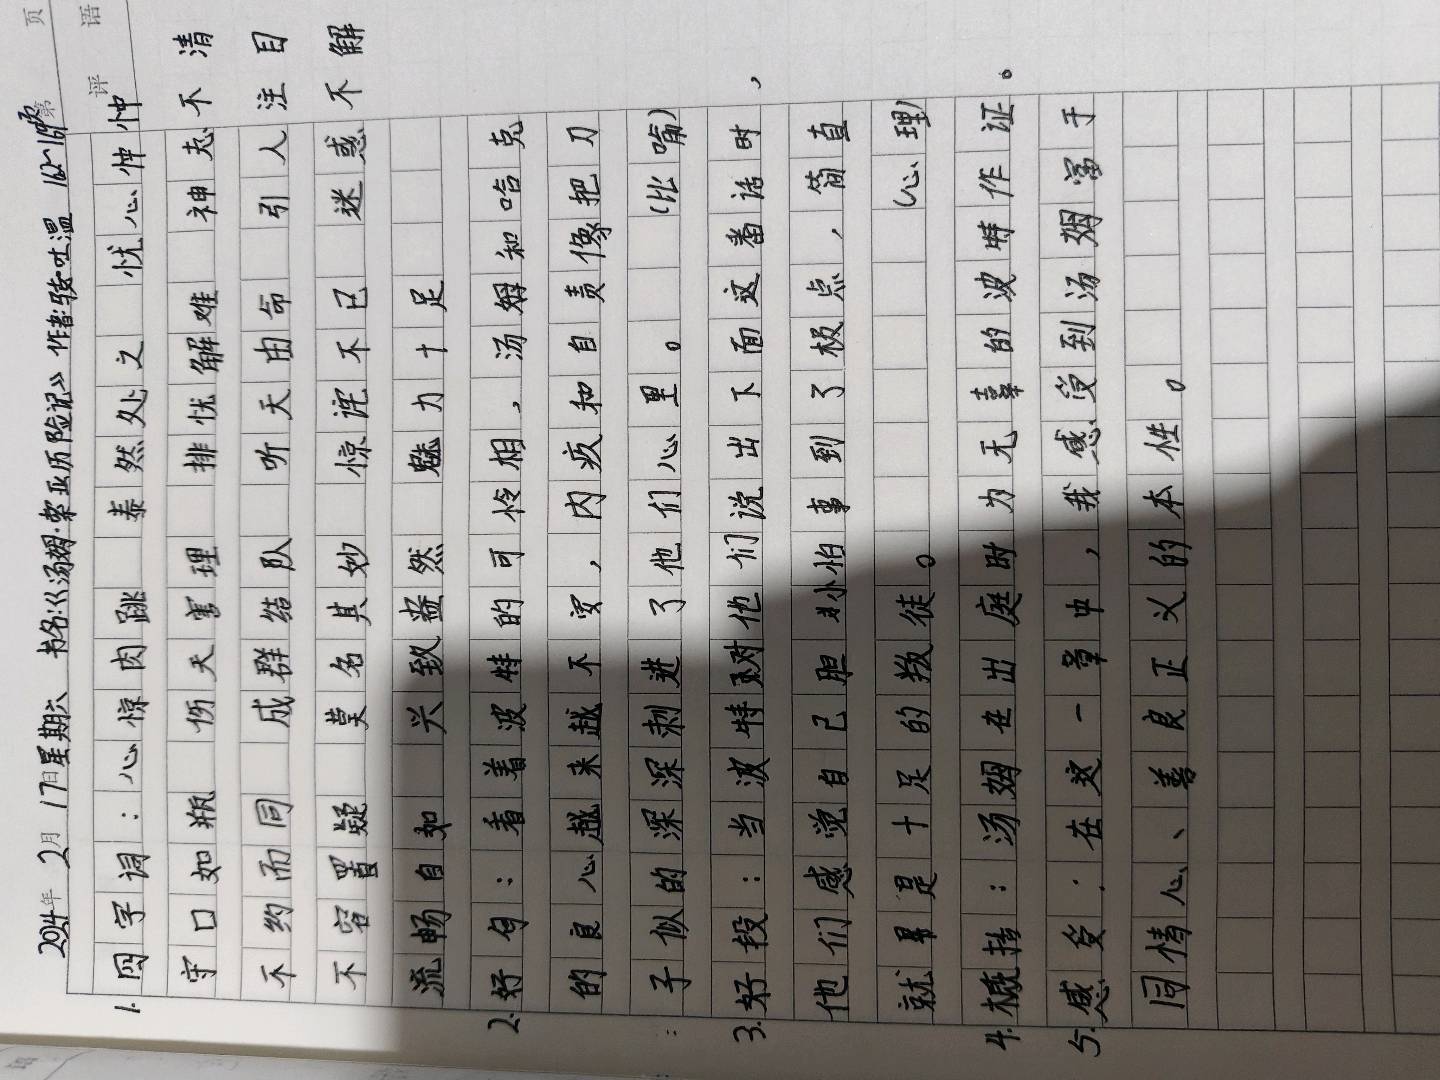 第 页
评 语
2024年2月17日星期六 书名:《汤姆·索亚历险记》作者:马克·吐温
1.四字词:心惊肉跳 泰然处之 忧心忡忡
守口如瓶 伤天害理 排忧解难 神志不清
不约而同 成群结队 听天由命 引人注目
不容置疑 莫名其妙 惊诧不已 迷惑不解
流畅自如 兴致盎然 魅力十足
2.好句:看着波特的可怜相,汤姆和哈克
的良心越来越不安,内疚和自责像把刀
子似的深深刺进了他们心里。(比喻)
3.好段:当波特对他们说出下面这番话时,
他们感觉自己胆小怕事到了极点,简直
就是十足的叛徒。(心理)
4.概括:汤姆在出庭时为无辜的波特作证。
5.感受:在这一章中,我感受到汤姆富于
同情心、善良正义的本性。